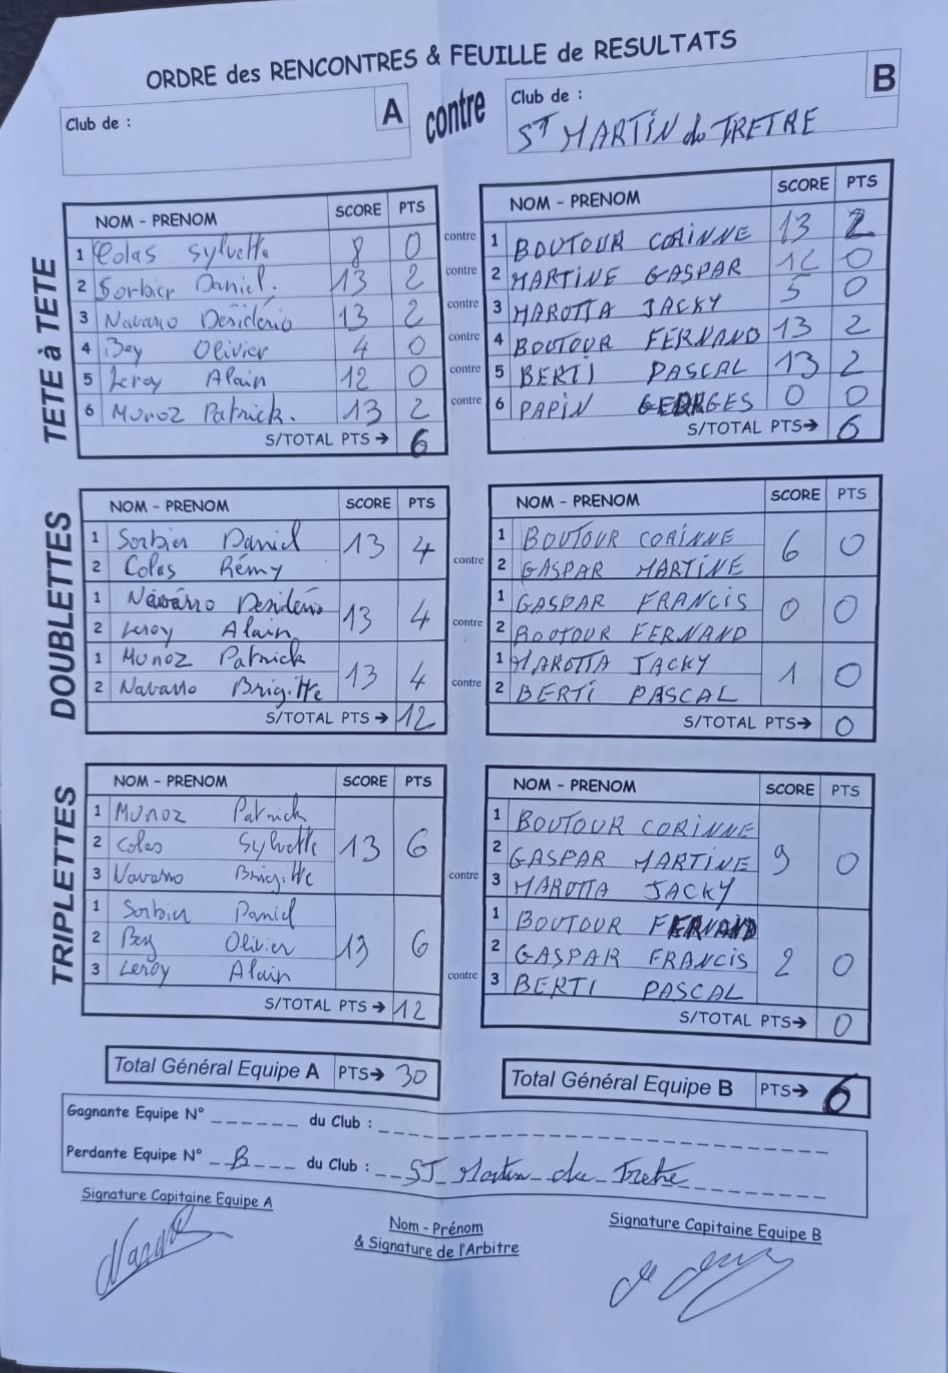 ORDRE des RENCONTRES & FEUILLE de RESULTATS
Club de : A contre Club de : B
ST MARTIN du TRETRE
TETE à TETE
NOM - PRENOM SCORE PTS NOM - PRENOM SCORE PTS
1 Colas Sylvette 8 0 contre 1 BOUTOUR CORINNE 13 2
2 Sorbier Daniel. 13 2 contre 2 MARTINE GASPAR 12 0
3 Navarro Desiderio 13 2 contre 3 MAROTTA JACKY 5 0
4 Bey Olivier 4 0 contre 4 BOUTOUR FERNAND 13 2
5 Leroy Alain 12 0 contre 5 BERTI PASCAL 13 2
6 Munoz Patrick. 13 2 contre 6 PAPIN GEORGES 0 0
S/TOTAL PTS→ 6 S/TOTAL PTS→ 6
DOUBLETTES
NOM - PRENOM SCORE PTS NOM - PRENOM SCORE PTS
1 Sorbier Daniel 13 4 1 BOUTOUR CORINNE 6 0
2 Colas Rémy contre 2 GASPAR MARTINE
1 Navarro Desiderio 13 4 1 GASPAR FRANCIS 0 0
2 Leroy Alain contre 2 BOUTOUR FERNAND
1 Munoz Patrick 13 4 1 MAROTTA JACKY 1 0
2 Navarro Brigitte contre 2 BERTI PASCAL
S/TOTAL PTS→ 12 S/TOTAL PTS→ 0
TRIPLETTES
NOM - PRENOM SCORE PTS NOM - PRENOM SCORE PTS
1 Munoz Patrick 1 BOUTOUR CORINNE
2 Colas Sylvette 13 6 2 GASPAR MARTINE 9 0
3 Navarro Brigitte contre 3 MAROTTA JACKY
1 Sorbier Daniel 1 BOUTOUR FERNAND
2 Bey Olivier 13 6 2 GASPAR FRANCIS 2 0
3 Leroy Alain contre 3 BERTI PASCAL
S/TOTAL PTS→ 12 S/TOTAL PTS→ 0
Total Général Equipe A PTS→ 30 Total Général Equipe B PTS→ 6
Gagnante Equipe N° du Club :
Perdante Equipe N° B du Club : ST Martin du Tretre
Signature Capitaine Equipe A Nom - Prénom Signature Capitaine Equipe B
& Signature de l'Arbitre